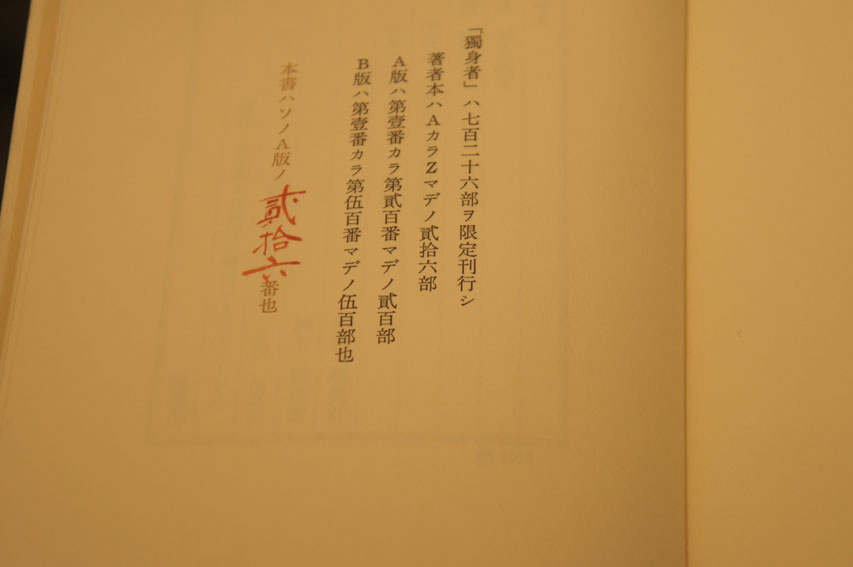 「獨身者」ハ七百二十六部ヲ限定刊行シ
著者本ハAカラZマデノ貳拾六部
A版ハ第壹番カラ第貳百番マデノ貳百部
B版ハ第壹番カラ第伍百番マデノ伍百部也
本書ハソノA版ノ貳拾六番也